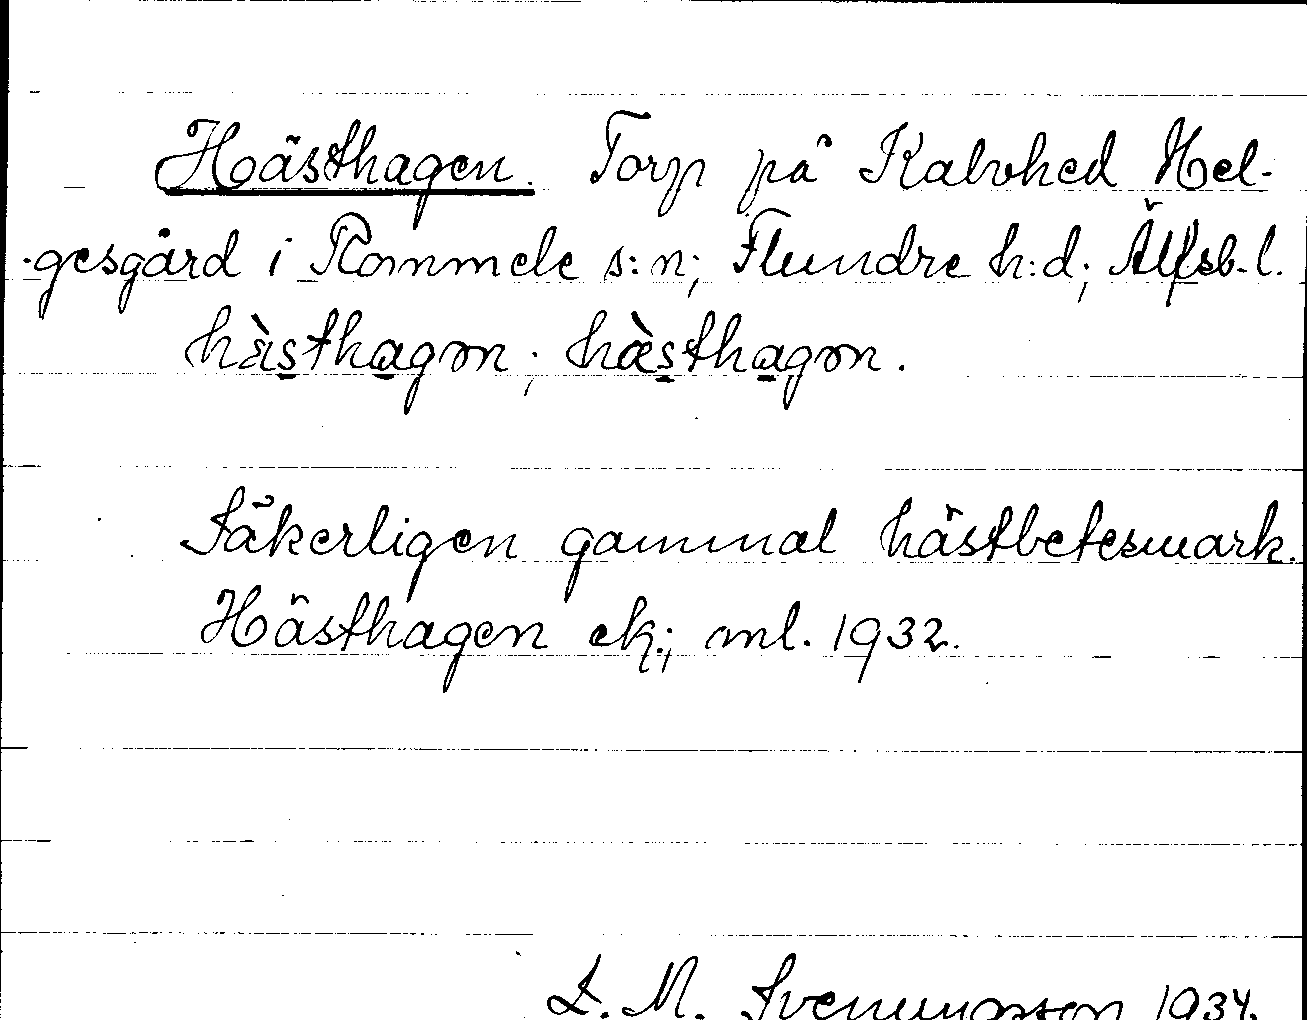 Hästhagen. Torp på Kalvhed Hel-
gesgård i Rommele s:n; Flundre h:d; Älfsb. l.
hàsthagən; hàsthagən.
Säkerligen gammal hästbetesmark.
Hästhagen ek.; ml. 1932.
S. M. Svenungsson 1934.